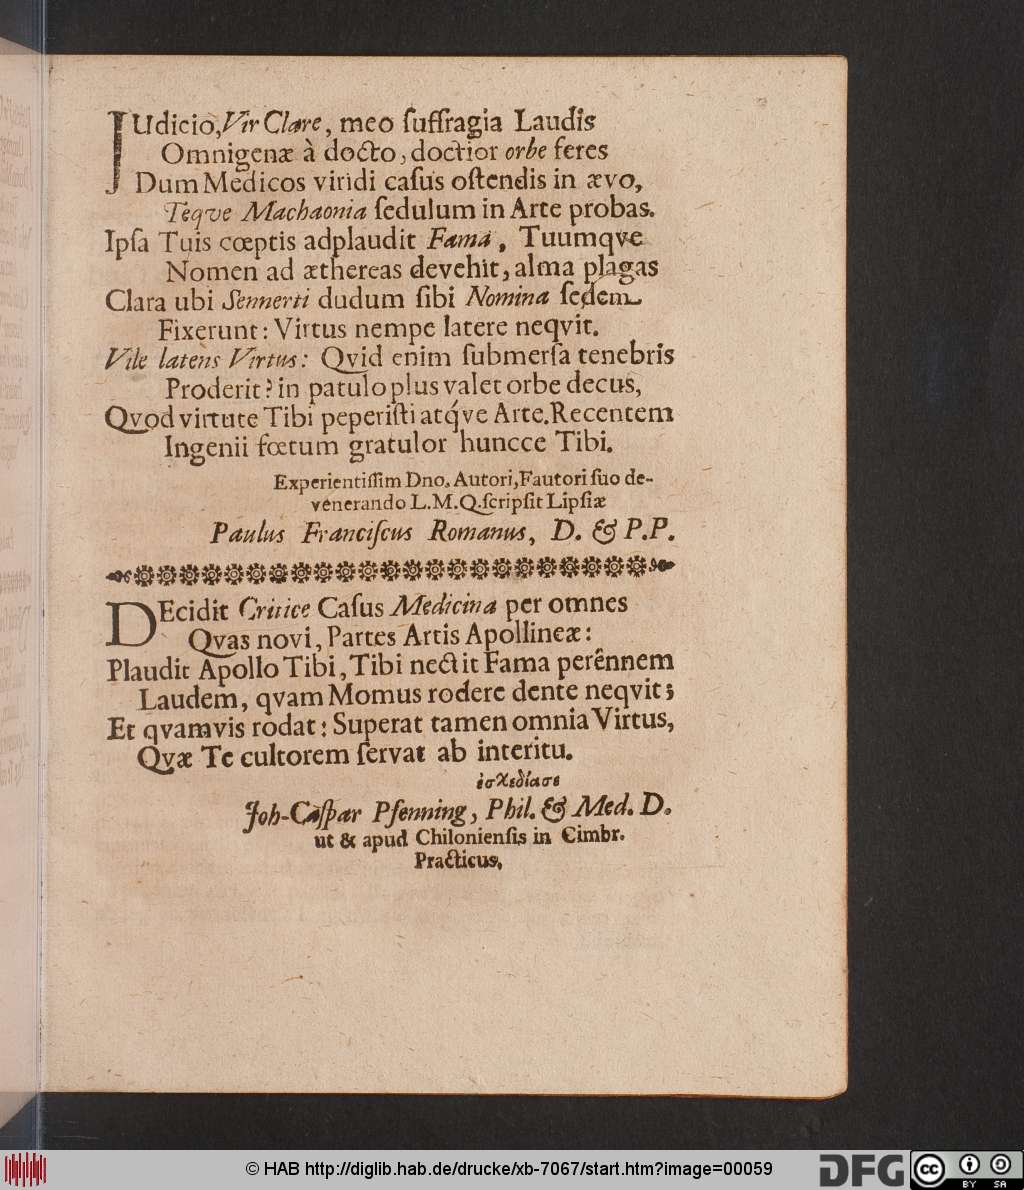 IUdicio, Vir Clare, meo ſuffragia Laudis
Omnigenæ à docto, doctior orbe feres
Dum Medicos viridi caſus oſtendis in ævo,
Teqve Machaonia ſedulum in Arte probas.
Ipſa Tuis cœptis adplaudit Fama, Tuumqve
Nomen ad æthereas devehit, alma plagas
Clara ubi Sennerti dudum ſibi Nomina ſedem
Fixerunt: Virtus nempe latere neqvit.
Vile latens Virtus: Qvid enim ſubmerſa tenebris
Proderit? in patulo plus valet orbe decus,
Qvod virtute Tibi peperiſti atq́ve Arte. Recentem
Ingenii fœtum gratulor huncce Tibi.
Experientiſſim Dno. Autori, Fautori ſuo de-
venerando L.M.Q. ſcripſit Lipſiæ
Paulus Franciſcus Romanus, D. & P.P.
DEcidit Critice Caſus Medicina per omnes
Qvas novi, Partes Artis Apollineæ:
Plaudit Apollo Tibi, Tibi nectit Fama perênnem
Laudem, qvam Momus rodere dente neqvit;
Et qvamvis rodat: Superat tamen omnia Virtus,
Qvæ Te cultorem ſervat ab interitu.
ἐσχεδίασε
Joh-Caſpar Pfenning, Phil. & Med. D.
ut & apud Chilonienſis in Cimbr.
Practicus,
© HAB http://diglib.hab.de/drucke/xb-7067/start.htm?image=00059
DFG
cc BY SA